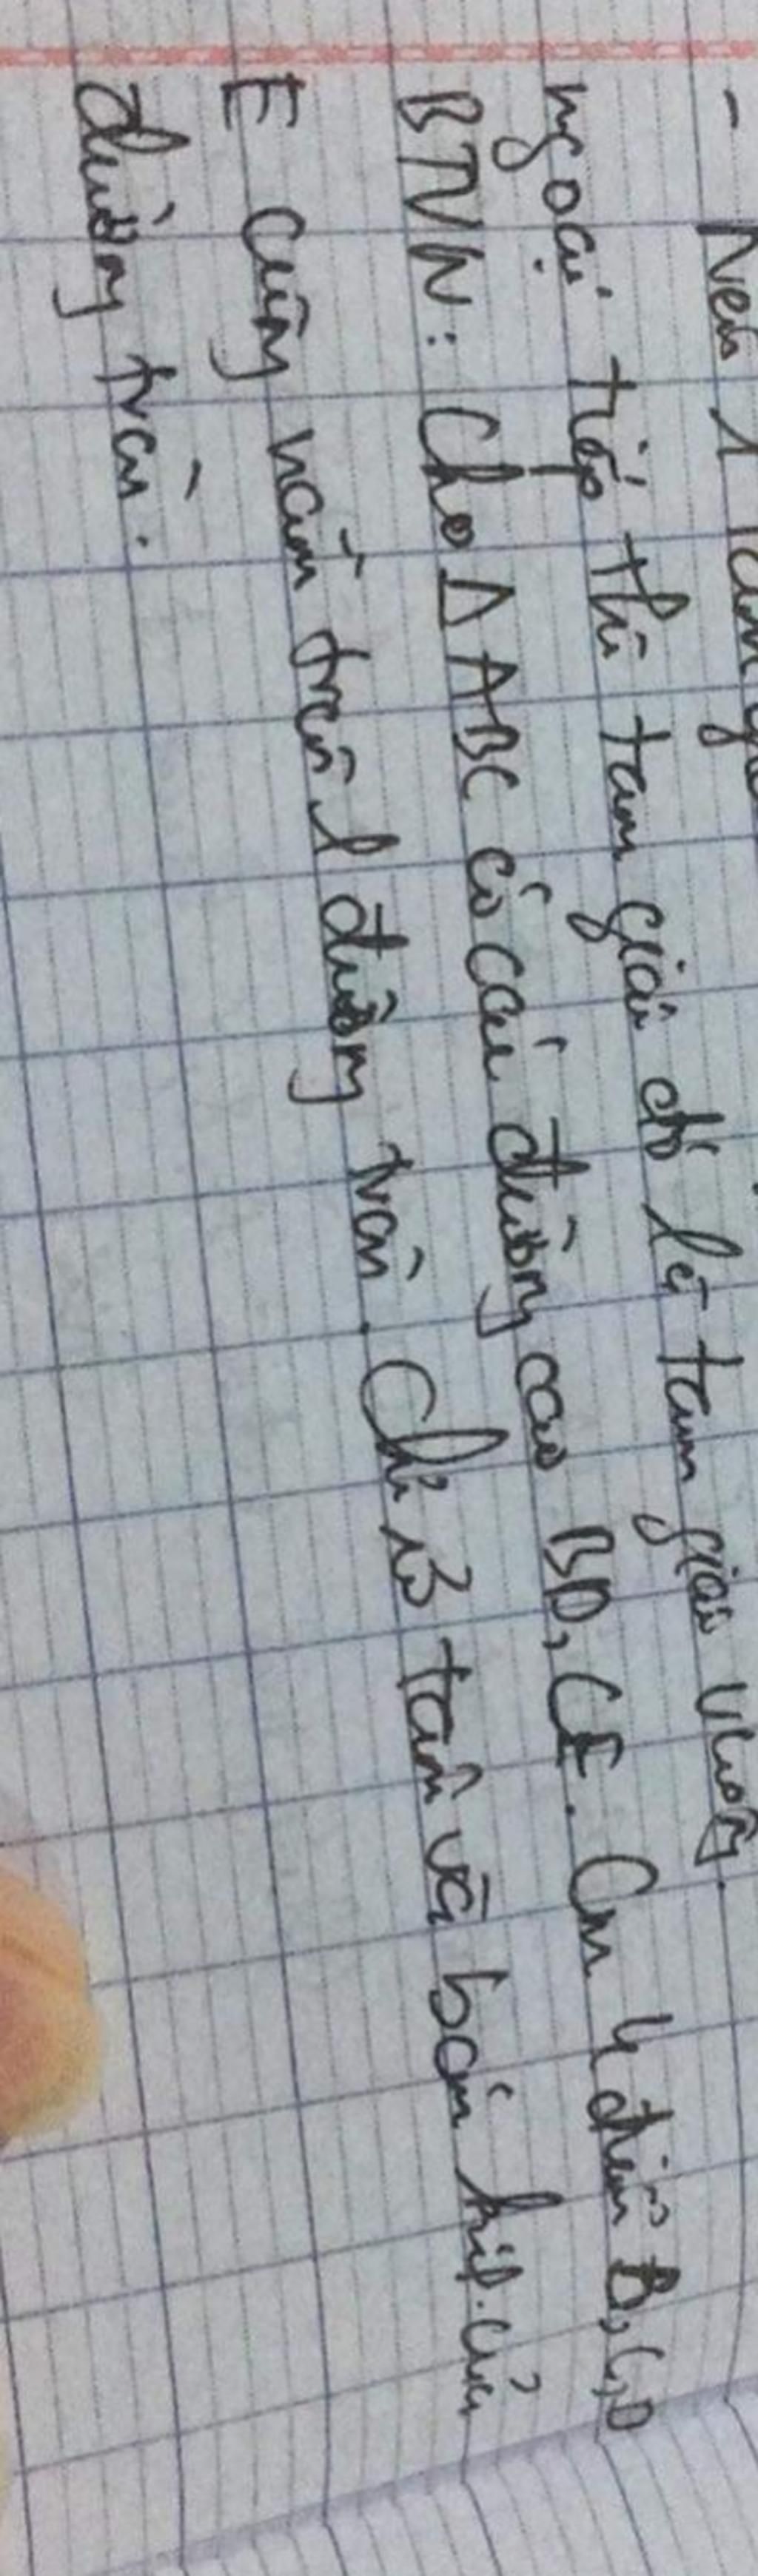 - Nếu 1 tam
ngoại tiếp thì tam giác đó là tam giác vuông.
BTVN: Cho Δ ABC có các đường cao BD, CE. Cm 4 điểm B, C, D
E cùng nằm trên 1 đường tròn. Chỉ rõ tâm và bán kính của
đường tròn.